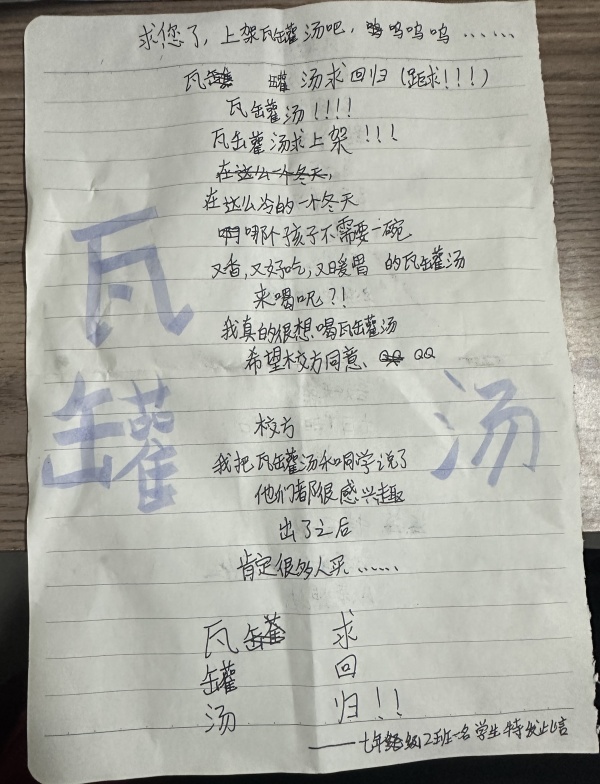 求您了，上架瓦罐汤吧，呜呜呜呜……
瓦罐 罐 汤求回归（跪求！！！）
瓦罐汤！！！！
瓦罐汤求上架！！！
在这么一个冬天，
在这么冷的一个冬天
哪个孩子不需要一碗
又香，又好吃，又暖胃 的瓦罐汤
来喝呢？！
我真的很想喝瓦罐汤
希望校方同意、QQ QQ
瓦
罐
汤
校方
我把瓦罐汤和同学说了
他们都很感兴趣
出了之后
肯定很多人买……
瓦罐 求
罐 回
汤 归！！
——七年级2班一名学生特发此言